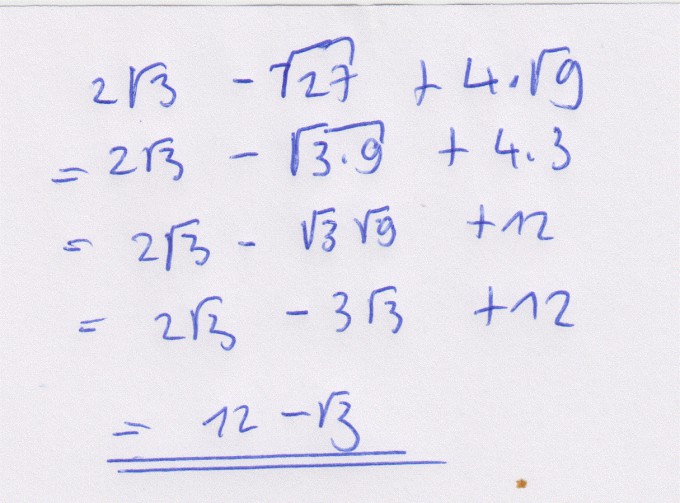 2√3 - √27 + 4·√9
= 2√3 - √3·9 + 4·3
= 2√3 - √3 √9 + 12
= 2√3 - 3√3 + 12
= 12 - √3